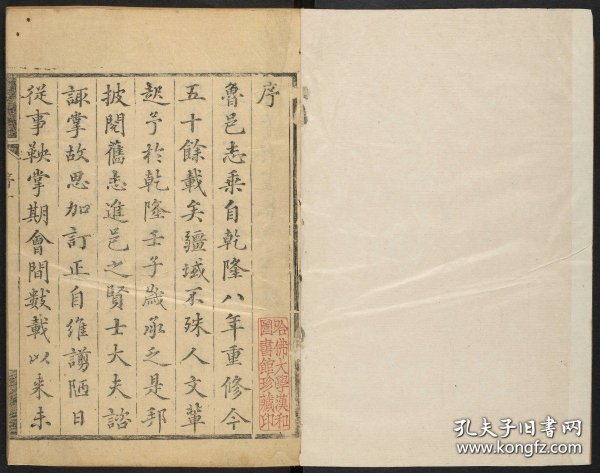 序
魯邑志乘自乾隆八年重修今
五十餘載矣疆域不殊人文輩
起予於乾隆壬子歲承乏是邦
披閱舊志進邑之賢士大夫諮
諏掌故思加訂正自維譾陋日
從事鞅掌期會間數載以來未
序
哈佛大學漢和
圖書館珍藏印
孔夫子旧书网
www.kongfz.com